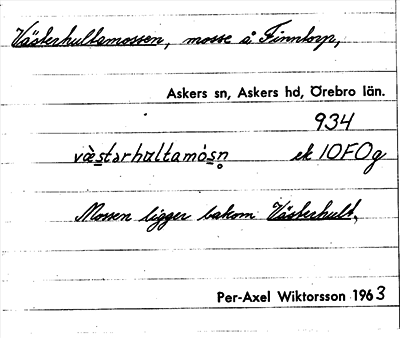 Västerhultamossen, mosse å Finntorp,
Askers sn, Askers hd, Örebro län.
934
væ̀stərhultamósn̥ ek 10FOg
Mossen ligger bakom Västerhult.
Per-Axel Wiktorsson 1963